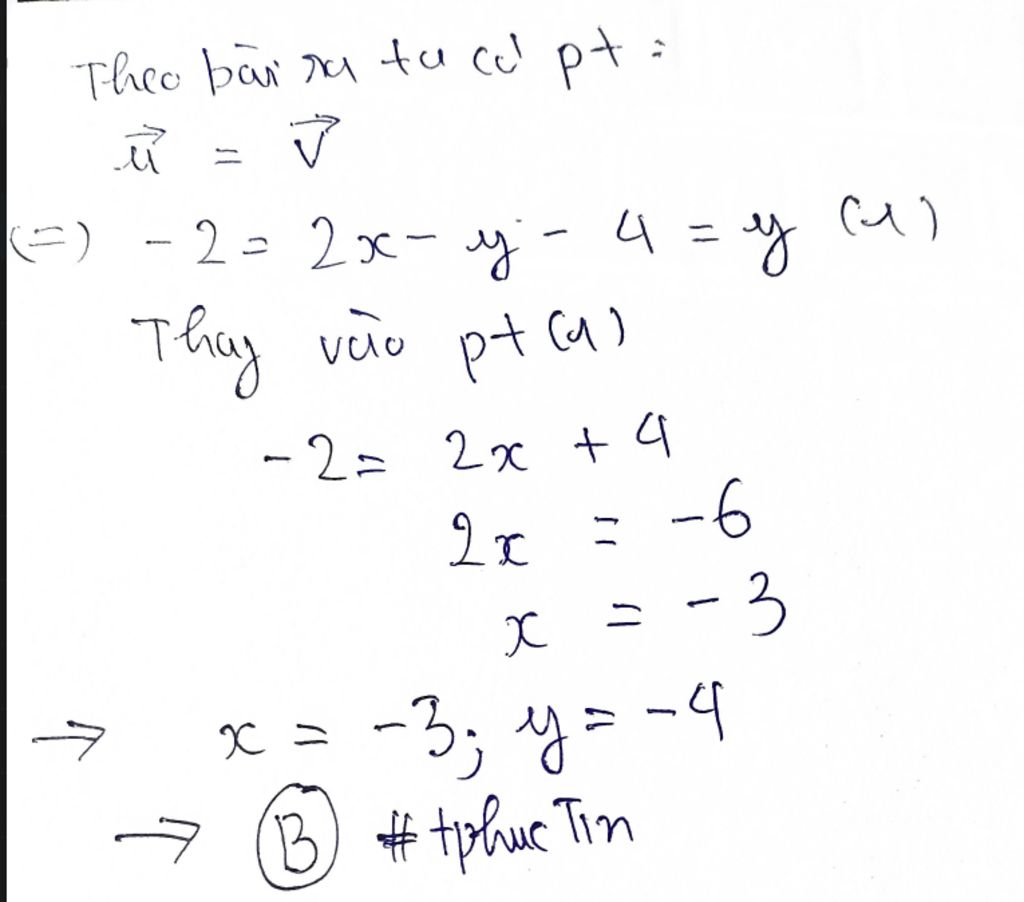 Theo bài ra ta có pt:
u⃗ = v⃗
(=) -2 = 2x - y - 4 = y (1)
Thay vào pt (1)
-2 = 2x + 4
2x = -6
x = -3
→ x = -3; y = -4
→ B # tphuc Tin